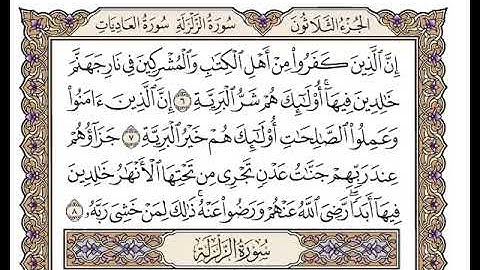 الجزء الثلاثون سورة الزلزلة سورة العاديات
إِنَّ ٱلَّذِينَ كَفَرُوا۟ مِنْ أَهْلِ ٱلْكِتَٰبِ وَٱلْمُشْرِكِينَ فِى نَارِ جَهَنَّمَ
خَٰلِدِينَ فِيهَآ ۚ أُو۟لَٰٓئِكَ هُمْ شَرُّ ٱلْبَرِيَّةِ ٦ إِنَّ ٱلَّذِينَ ءَامَنُوا۟
وَعَمِلُوا۟ ٱلصَّٰلِحَٰتِ أُو۟لَٰٓئِكَ هُمْ خَيْرُ ٱلْبَرِيَّةِ ٧ جَزَآؤُهُمْ
عِندَ رَبِّهِمْ جَنَّٰتُ عَدْنٍ تَجْرِى مِن تَحْتِهَا ٱلْأَنْهَٰرُ خَٰلِدِينَ
فِيهَآ أَبَدًا ۖ رَّضِىَ ٱللَّهُ عَنْهُمْ وَرَضُوا۟ عَنْهُ ۚ ذَٰلِكَ لِمَنْ خَشِىَ رَبَّهُۥ ٨
سورة الزلزلة